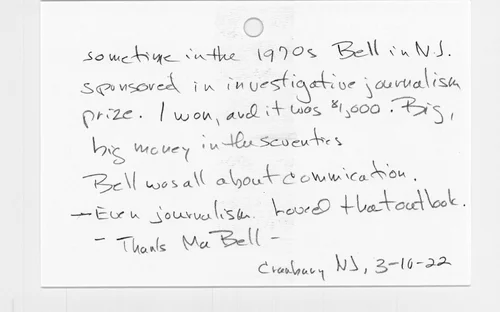 sometime in the 1970s Bell in N.J.
sponsored in investigative journalism
prize. I won, and it was $1,000. Big,
big money in the seventies
Bell was all about commication.
- Even journalism. Loved that outlook.
- Thanks Ma Bell -
Cranbury NJ, 3-10-22